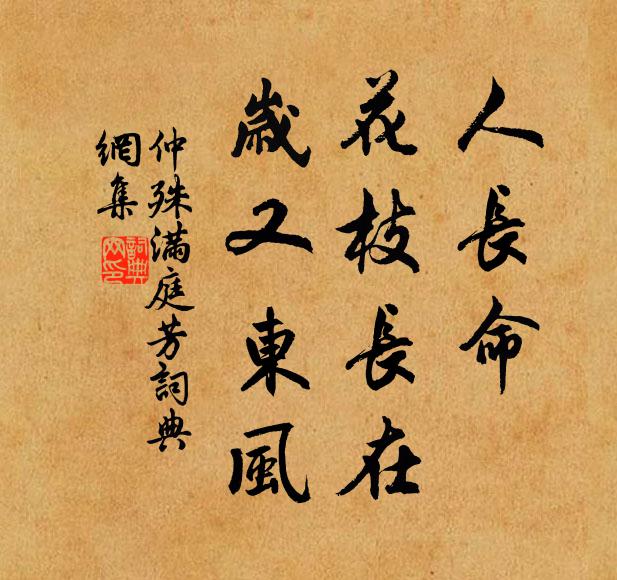 人長命
花枝長在
歲又東風
仲殊滿庭芳詞典
網集
詞典
网印